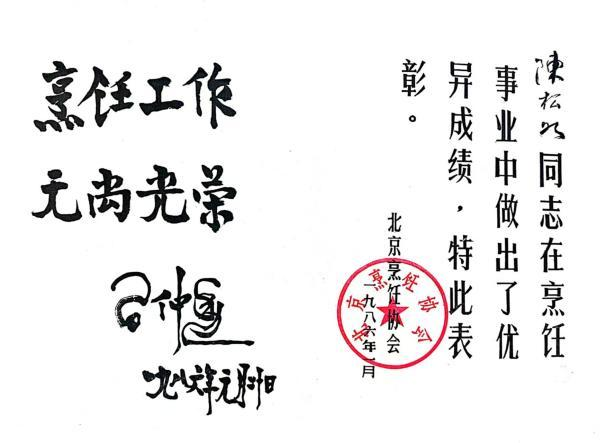 烹饪工作
无尚光荣
陳松如同志在烹饪
事业中做出了优
异成绩，特此表
彰。
北京烹饪协会
一九八六年一月
北京烹饪协会